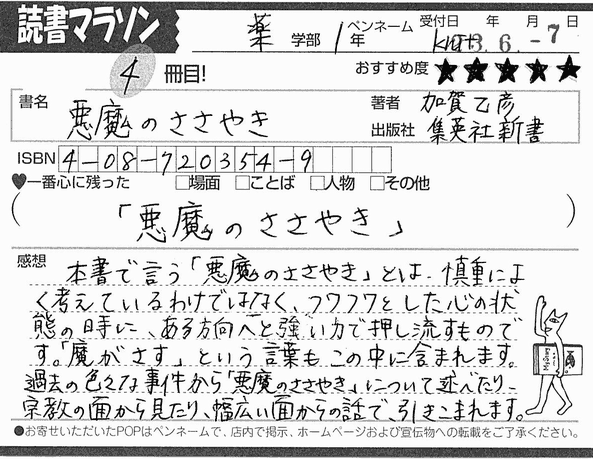 読書マラソン
薬 学部 1年 ペンネーム 受付日 年 月 日
3. 6. -7
4 冊目! おすすめ度 ★★★★★
書名 悪魔のささやき
著者 加賀乙彦
出版社 集英社新書
ISBN 4-08-720354-9
♥一番心に残った □場面 □ことば □人物 □その他
(「悪魔のささやき」)
感想
本書で言う「悪魔のささやき」とは、慎重によ
く考えているわけではなく、フワフワとした心の状
態の時に、ある方向へと強い力で押し流すもので
す。「魔がさす」という言葉もこの中に含まれます。
過去の色々な事件から「悪魔のささやき」について述べたり、
宗教の面から見たり、幅広い面からの話で、引きこまれます。
●お寄せいただいたPOPはペンネームで、店内で掲示、ホームページおよび宣伝物への転載をご了承ください。